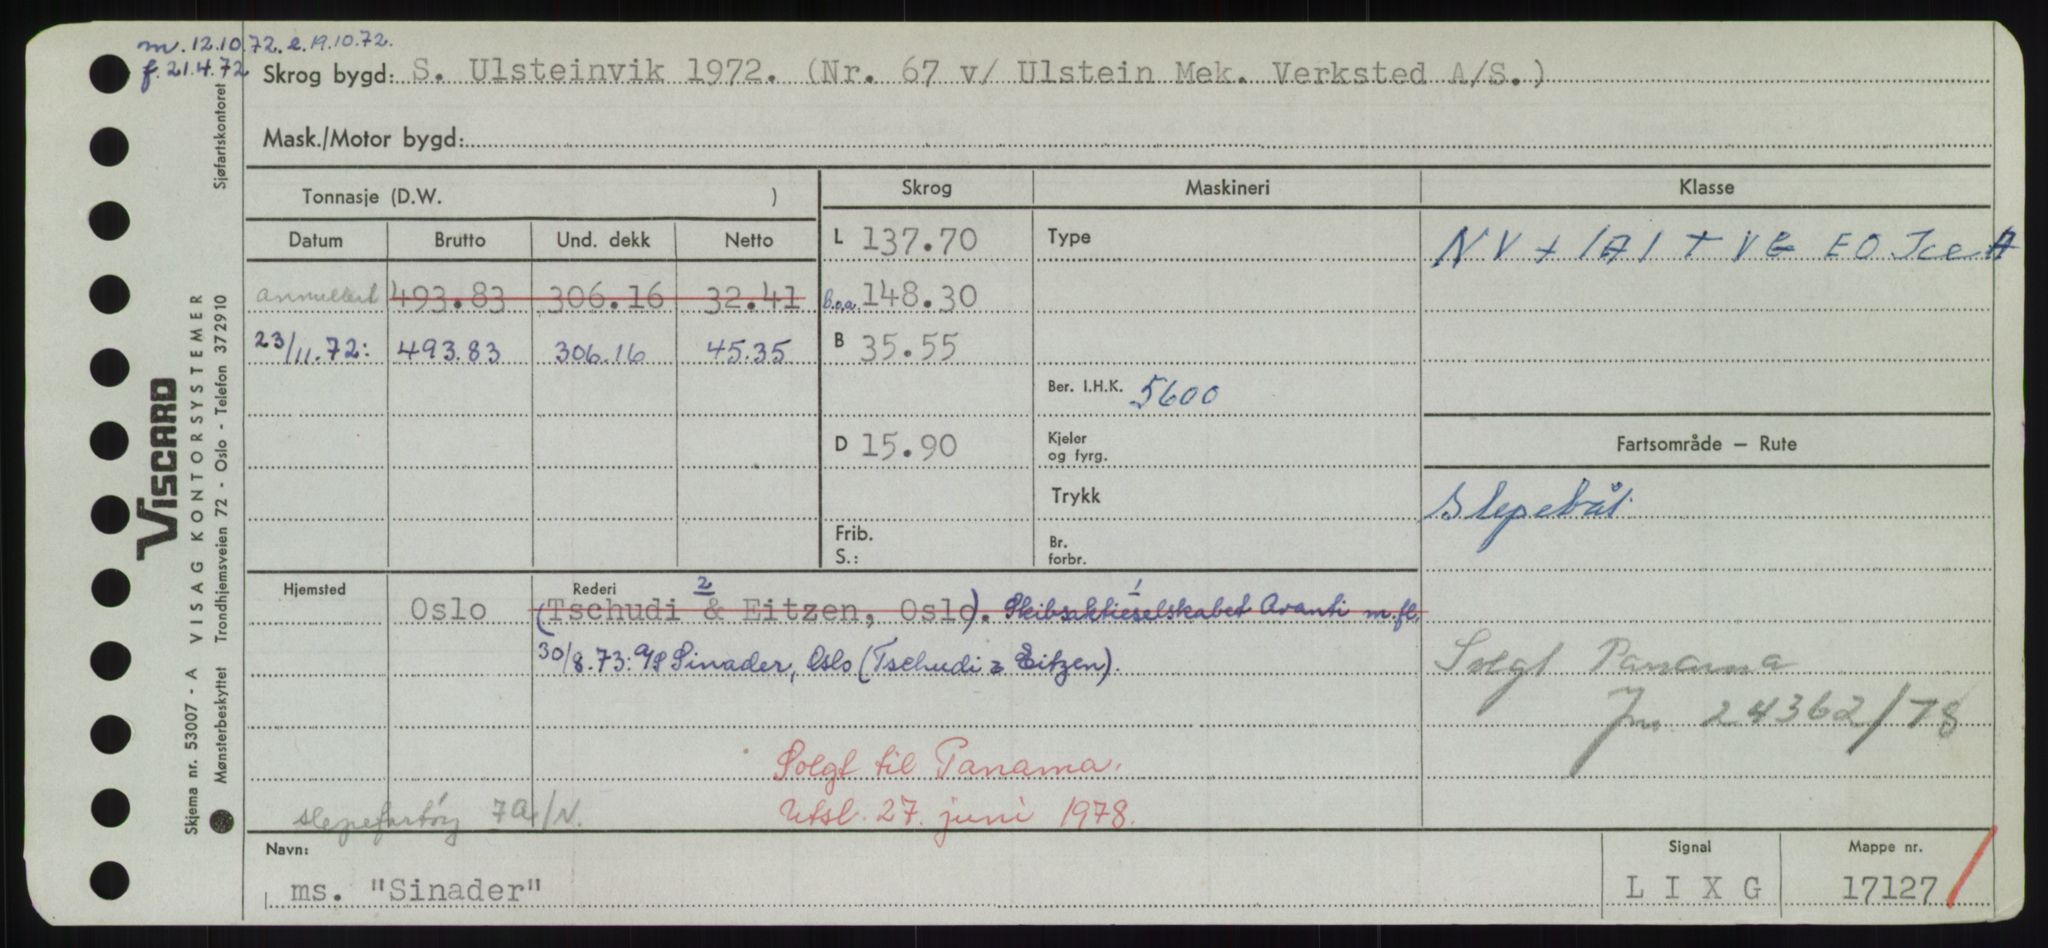 m. 12.10.72. e. 19.10.72.
f. 21.4.72
Skrog bygd: S. Ulsteinvik 1972. (Nr. 67 v/ Ulstein Mek. Verksted A/S.)
Mask./Motor bygd:
Tonnasje (D.W. )
Skrog Maskineri Klasse
Datum Brutto Und. dekk Netto
L 137.70 Type NV + 1A1 + VE EO Ice A
annullert 493.83 306.16 32.41 b.o.a. 148.30
23/11.72: 493.83 306.16 45.35 B 35.55
Ber. I.H.K. 5600
D 15.90 Kjeler og fyrg.
Fartsområde — Rute
Trykk
Slepebåt
Frib.
S.:
Br.
forbr.
Hjemsted Oslo
Rederi 2 1
(Tschudi & Eitzen, Oslo). Skibsaktieselskabet Avanti m.fl.
30/8.73: A/S Sinader, Oslo (Tschudi & Eitzen).
Solgt Panama
Jnr 24362/78
Solgt til Panama.
Utsl. 27. juni 1978.
slepefartøy 7A/N.
Navn: ms. "Sinader"
Signal L I X G
Mappe nr. 17127
VISCARD
Skjema nr. 53007 - A VISAG KONTORSYSTEMER
Mønsterbeskyttet Trondhjemsveien 72 - Oslo - Telefon 372910
Sjøfartskontoret